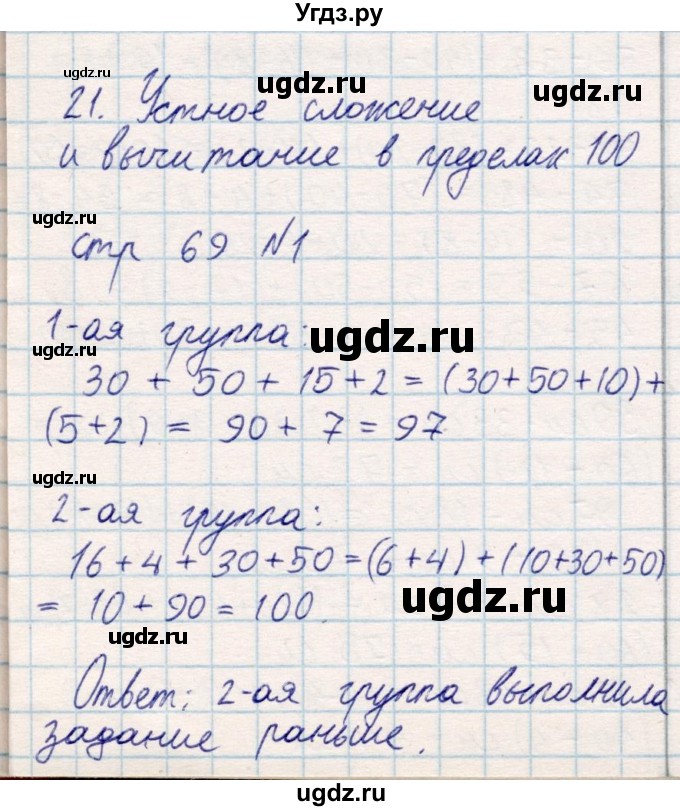 Угдз.ру
ugdz.ru
ugdz.ru
ugdz.ru
21. Устное сложение
и вычитание в пределах 100
ugdz.ru
стр 69 №1
ugdz.ru
1-ая группа:
30 + 50 + 15 + 2 = (30+50+10)+
(5+2) = 90 + 7 = 97
ugdz.ru
2-ая группа:
16 + 4 + 30 + 50 = (6+4) + (10+30+50)
= 10 + 90 = 100.
ugdz.ru
ugdz.ru
Ответ: 2-ая группа выполнила
задание раньше.
ugdz.ru